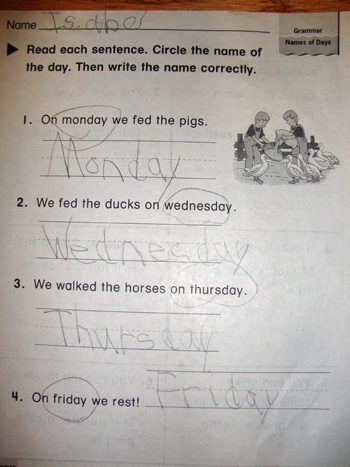 Name
Grammar
Names of Days
Read each sentence. Circle the name of
the day. Then write the name correctly.
1. On monday we fed the pigs.
Monday
2. We fed the ducks on wednesday.
Wednesday
3. We walked the horses on thursday.
Thursday
4. On friday we rest! Friday